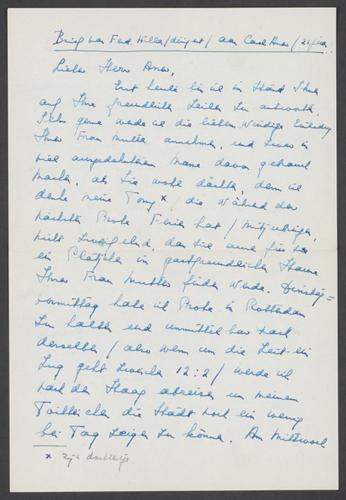 Brief van Ferd. Hiller / dirigent / aan Carl
Lieber Herr
Erst heute bin ich im Stand Ihnen
auf Ihre freundlichen Zeilen zu antworten.
Sehr gerne werde ich die lieben Einladung
Ihrer Frau Mutter annehmen, und zwar in
viel ausgedehnterem Masse davon Gebrauch
machen, als Sie wohl dachten, denn ich
denke meine Tony x, die während der
nächsten Probe Ferien hat / mitzubringen,
nicht zweifelnd, dass sie auch für sie
ein Plätzchen im gastfreundlichen Hause
Ihrer Frau Mutter finden werde. Dienstag-
vormittag habe ich Probe in Rotterdam
zu halten und unmittelbar nach
derselben / also wenn um die Zeit ein
Zug geht zwischen 12:2 / werde ich
nach den Haag abreisen um meinem
Töchterchen die Stadt noch ein wenig
bei Tag zeigen zu können. Am Mittwoch
x zijn dochtertje